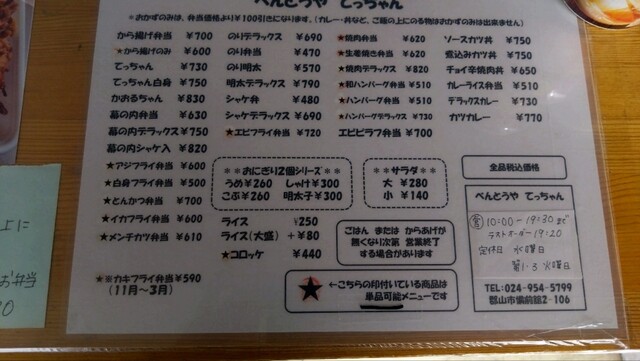 べんとうや てっちゃん
*おかずのみは、弁当価格より¥100引きになります。(カレー・丼など、ご飯の上にのる物はおかずのみは出来ません)
から揚げ弁当 ¥700
★から揚げのみ ¥600
てっちゃん ¥730
てっちゃん白身 ¥750
かおるちゃん ¥830
幕の内弁当 ¥630
幕の内デラックス ¥750
幕の内シャケ入 ¥820
★アジフライ弁当 ¥600
★白身フライ弁当 ¥500
★とんかつ弁当 ¥700
★イカフライ弁当 ¥600
★メンチカツ弁当 ¥610
★※カキフライ弁当 ¥590
(11月~3月)
のりデラックス ¥690
のり弁当 ¥470
のり明太 ¥570
明太デラックス ¥790
シャケ弁 ¥480
シャケデラックス ¥690
★エビフライ弁当 ¥720
★焼肉弁当 ¥620
★生姜焼き弁当 ¥620
★焼肉デラックス ¥820
★和ハンバーグ弁当 ¥510
★ハンバーグ弁当 ¥510
★ハンバーグデラックス ¥730
エビピラフ弁当 ¥700
ソースカツ丼 ¥750
煮込みカツ丼 ¥750
チョイ辛焼肉丼 ¥650
カレーライス弁当 ¥510
デラックスカレー ¥730
カツカレー ¥770
**おにぎり2個シリーズ**
うめ¥260 しゃけ¥300
こぶ¥260 明太子¥300
**サラダ**
大 ¥280
小 ¥140
ライス ¥250
ライス(大盛) +¥80
★コロッケ ¥440
ごはん または からあげが
無くなり次第 営業終了
する場合があります
★ ←こちらの印付いている商品は
単品可能メニューです
全品税込価格
べんとうや てっちゃん
営 10:00-19:30まで
ラストオーダー 19:20
定休日 水曜日
第1・3 火曜日
TEL:024-954-5799
郡山市備前舘2-106
お弁当